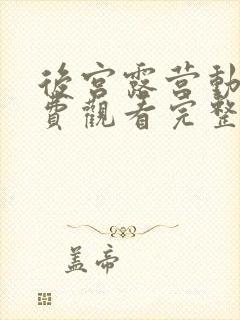 後宮露营動
費觀看完整
盖帝